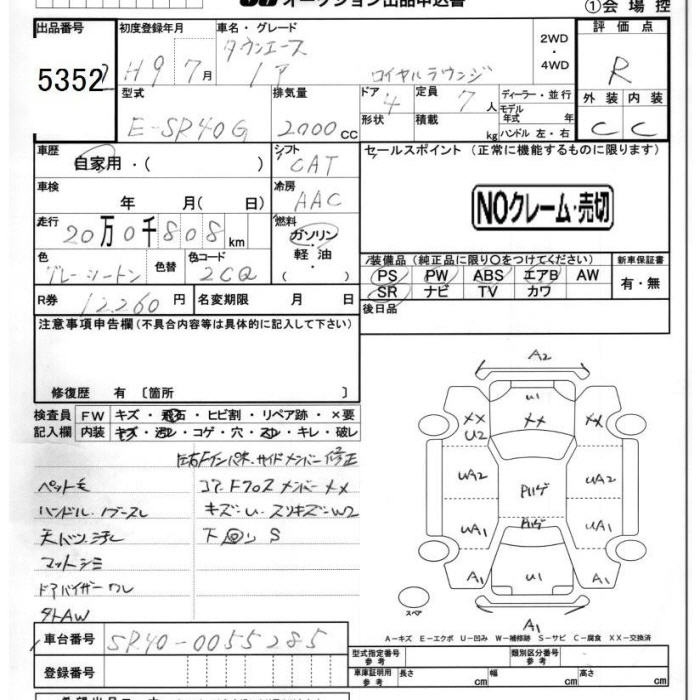 オークション出品申込書
①会場控
出品番号
5352
初度登録年月
H9年 7月
車名・グレード
タウンエース
ノア ロイヤルラウンジ
2WD
・
4WD
評価点
R
外装 内装
C C
型式
E-SR40G
排気量
2000 CC
ドア
4
形状
定員
7人
積載
kg
ディーラー・並行
モデル
年式 年
ハンドル 左・右
車歴
自家用・( )
シフト
CAT
車検
年 月(日)
冷房
AAC
走行
20万0千808km
燃料
ガソリン
・
軽油
( )
色
グレーツートン
色替
色コード
2CQ
R券 12260円
名変期限 月 日
セールスポイント(正常に機能するものに限ります)
NOクレーム・売切
装備品(純正品に限り〇をつけてください)
新車保証書
PS PW ABS エアB AW
SR ナビ TV カワ
有・無
後日品
注意事項申告欄(不具合内容等は具体的に記入して下さい)
修復歴 有〔箇所 〕
検査員
記入欄
FW キズ・飛石・ヒビ割・リペア跡・×要
内装 キズ・汚レ・コゲ・穴・スレ・キレ・破レ
左右Fインパネ、サイドメンバー修正
ペット毛 コア、Fクロスメンバー××
ハンドル、ノブ スレ キズ・U、スリキズ・W2
天バリ汚レ 下回りS
マットシミ
ドアバイザーワレ
タトAW
A2
U1
×× ×× ××
U2
UA2 Pハゲ UA2
UA1 Pハゲ UA1
A1 U1 A1
スペア
A1
A-キズ E-エクボ U-凹み W-補修跡 S-サビ C-腐食 XX-交換済
車台番号 SR40-0055285
登録番号
型式指定番号
参考
類別区分番号
参考
車庫証明用
参考
長さ cm 幅 cm 高さ cm